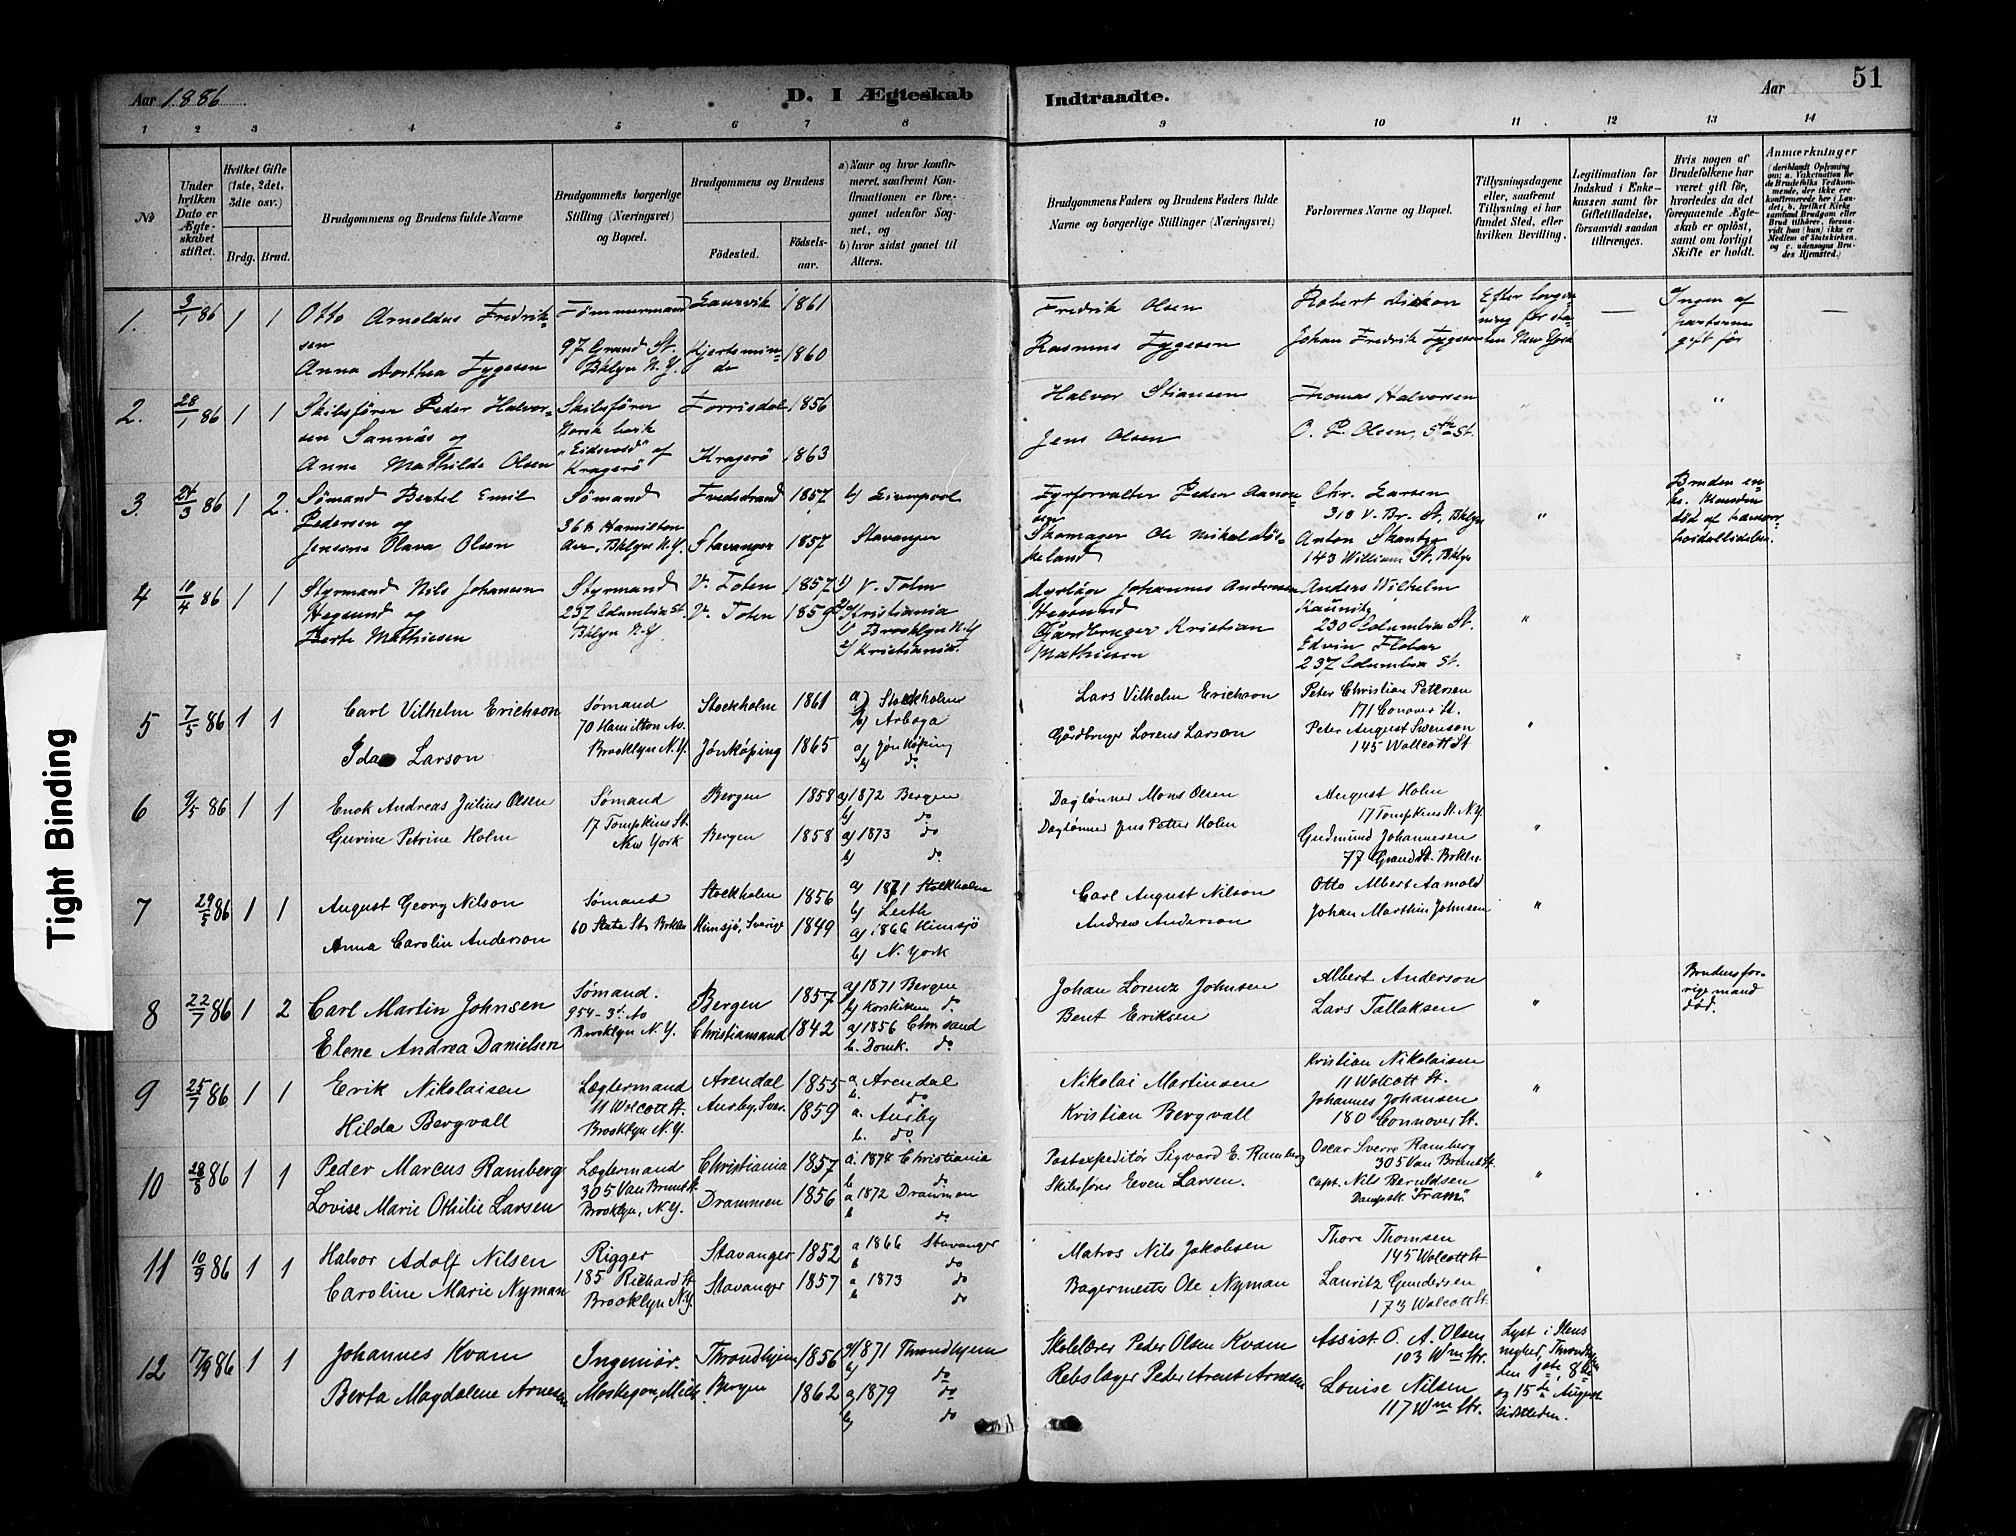 Tight Binding
Aar 1886
D. I Ægteskab
Indtraadte.
Aar
51
1 2 3 4 5 6 7 8 9 10 11 12 13 14
No
Under hvilken Dato er Ægteskabet stiftet.
Hvilket Gifte (1ste, 2det, 3die osv.)
Brdg. Brud.
Brudgommens og Brudens fulde Navne
Brudgommens borgerlige Stilling (Næringsvei) og Bopæl.
Brudgommens og Brudens
Fødested.
Fødselsaar.
a) Naar og hvor konfirmeret, saafremt Konfirmationen er foregaaet udenfor Sognet, og
b) hvor sidst gaaet til Alters.
Brudgommens Faders og Brudens Faders fulde Navne og borgerlige Stillinger (Næringsvei)
Forlovernes Navne og Bopæl.
Tillysningsdagene eller, saafremt Tillysning ei har fundet Sted, efter hvilken Bevilling.
Legitimation for Indskud i Enkekassen samt for Giftetilladelse, forsaavidt saadan tiltrænges.
Hvis nogen af Brudefolkene har været gift før, hvorledes da det foregaaende Ægteskab er opløst, samt om lovligt Skifte er holdt.
Anmærkninger
1. 3/1 86 1 1
Otto Arnoldus Fredriksen
Anna Dorthea Tygesen
Tømmermand
97 Grand St.
Bklyn N.Y.
Laurvik 1861
Kjerteminde 1860
Fredrik Olsen
Rasmus Tygesen
Robert Dickson
Johan Fredrik Tygesen
Efter lovgivning for staten New York
—
Ingen af parterne gift før
—
2. 28/1 86 1 1
Skibsfører Peder Halvorsen Sannäs og
Anne Mathilde Olsen
Skibsfører
Norsk bark
"Eidsvold" af
Kragerö
Torrisdal 1856
Kragerö 1863
Halvor Stiansen
Jens Olsen
Thomas Halvorsen
O. P. Olsen, 5th St.
" "
3. 24/3 86 1 2.
Sömand Bertel Emil
Pedersen og
Jensine Olava Olsen
Sömand
368 Hamilton
Ave., Bklyn N.Y.
Tvedestrand 1857
Stavanger 1857
b) Liverpool
Stavanger
Fyrforvalter Peder Aanonsen
Skomager Ole Nikolai
Chr. Larsen
318 V. Br. St, Bklyn
Anton
143 William St, Bklyn
"
Bruden enke. Manden död af
4 10/4 86 1 1
Styrmand Nils Johansen
Hegsund og
Berte Mathiesen
Styrmand
237 Columbia St.
Bklyn N.Y.
V. Toten 1857
V. Toten 1859
V. Toten
Kristiania
Brooklyn N.Y
Kristiania
Johannes Andersen
Hegsund
Gårdbruger Kristian
Mathiesen
Anders Wilhelm
Kaunitz
230 Columbia St.
Edvin Flobar
237 Columbia St.
"
5 7/5 86 1 1
Carl Vilhelm Erichson
Ida Larson
Sømand
70 Hamilton Av.
Brooklyn N.Y.
Stockholm 1861
Jönköping 1865
a) Stockholm
b) Arboga
a) Jönköping
b) do
Lars Vilhelm Erichson
Gårdbruger Lorens Larson
Peter Christian Petersen
171 Conover St.
Peter August Swenson
145 Wollcott St
"
6 9/5 86 1 1
Enok Andreas Julius Olsen
Gurine Petrine Holm
Sømand
17 Tompkins St.
New York
Bergen 1858
Bergen 1858
a) 1872 Bergen
b) do
a) 1873 do
b) do
Daglønner Mons Olsen
Daglønner Jens Petter Holm
August Holm
17 Tompkins St. N.Y.
Gudmund Johannesen
77 Grand St. Brkln.
"
7 29/5 86 1 1
August Georg Nilson
Anna Carolin Anderson
Sømand
60 State St. Brkln
Stockholm 1856
Himsjö, Sverige 1849
a) 1871 Stockholm
b) Leith
a) 1866 Himsjö
b) N. York
Carl August Nilson
Andrew Anderson
Otto Albert Aamold
Johan Marthin Johnsen
"
8 22/7 86 1 2
Carl Martin Johnsen
Elene Andrea Danielsen
Sømand.
954 - 3d. Av
Brooklyn N.Y.
Bergen 1857
Christiansand 1842
a) 1871 Bergen
b) Korskirken do
a) 1856 Chrsand
b. Domk. do
Johan Lorenz Johnsen
Bent Eriksen
Albert Anderson
Lars Tallaksen
"
Brudens forrige mand død.
9 25/7 86 1 1
Erik Nikolaisen
Hilda Bergvall
Lægtermand
11 Wolcott St.
Brooklyn N.Y.
Arendal 1855
Ausby, Sver. 1859
a. Arendal
b. do
a. Ausby
b. do
Nikolai Martinsen
Kristian Bergvall
Kristian Nikolaisen
11 Wolcott St.
Johannes Johansen
180 Connover St.
"
10 28/8 86 1 1
Peder Marcus Ramberg
Lovise Marie Othilie Larsen
Lægtermand
305 Van Brunt St.
Brooklyn, N.Y.
Christiania 1857
Drammen 1856
a. 1874 Christiania
b do
a 1872 Drammen
b do
Postexpeditør Sigvard E. Ramberg
Skibsfører Even Larsen.
Oscar Sverre Ramberg
305 Van Brunt St.
Capt. Nils Beruldsen
Dampsk. "Fram".
"
11 10/9 86 1 1
Halvor Adolf Nilsen
Caroline Marie Nyman
Rigger
185 Richard St
Brooklyn N.Y.
Stavanger 1852
Stavanger 1857
a 1866 Stavanger
b do
a 1873 do
b do
Matros Nils Jakobsen
Bagermester Ole Nyman
Thore Thomsen
145 Wolcott St
Lauritz Gundersen
173 Wolcott St.
"
12 17/9 86 1 1
Johannes Kvam
Berta Magdalene Arnesen
Ingeniør.
Moskegon, Mich.
Throndhjem 1856
Bergen 1862
a) 1871 Throndhjem
b) do
a) 1879 do
b) do
Skolelærer Peder Olsen Kvam
Rebslager Peter Arent Arnesen
Assist. O. A. Olsen
103 Wm Str.
Louise Nilsen
117 Wm Str.
Lyst i Ilens
menighed, Throndhjem
den 1ste, 8de
og 15de August
sidstleden.